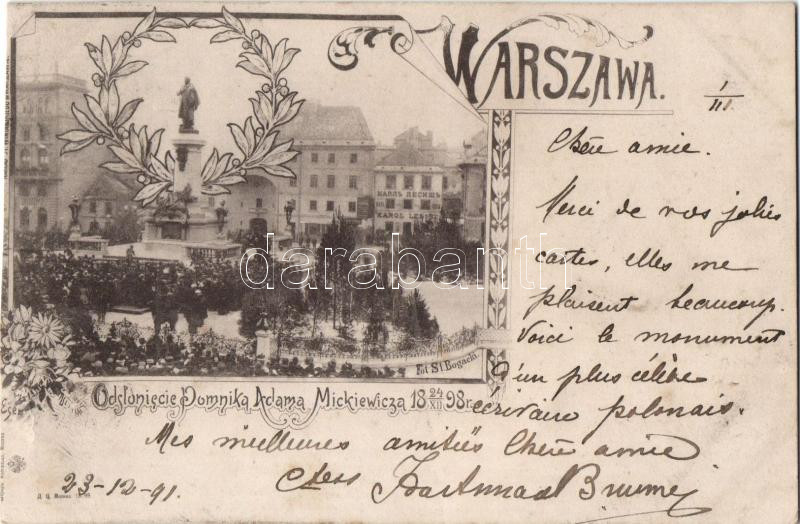 WARSZAWA.
1/III.
Chère amie.
Merci de vos jolies
cartes, elles me
plaisent beaucoup.
Voici le monument
d'un plus célèbre
écrivain polonais.
КАРЛЪ
KAROL
darabanth
Fot St. Bogacki
Odsłonięcie Pomnika Adama Mickiewicza 18 24/XII 98 r.
Mes meilleures amitiés Chère amie
23-12-91.